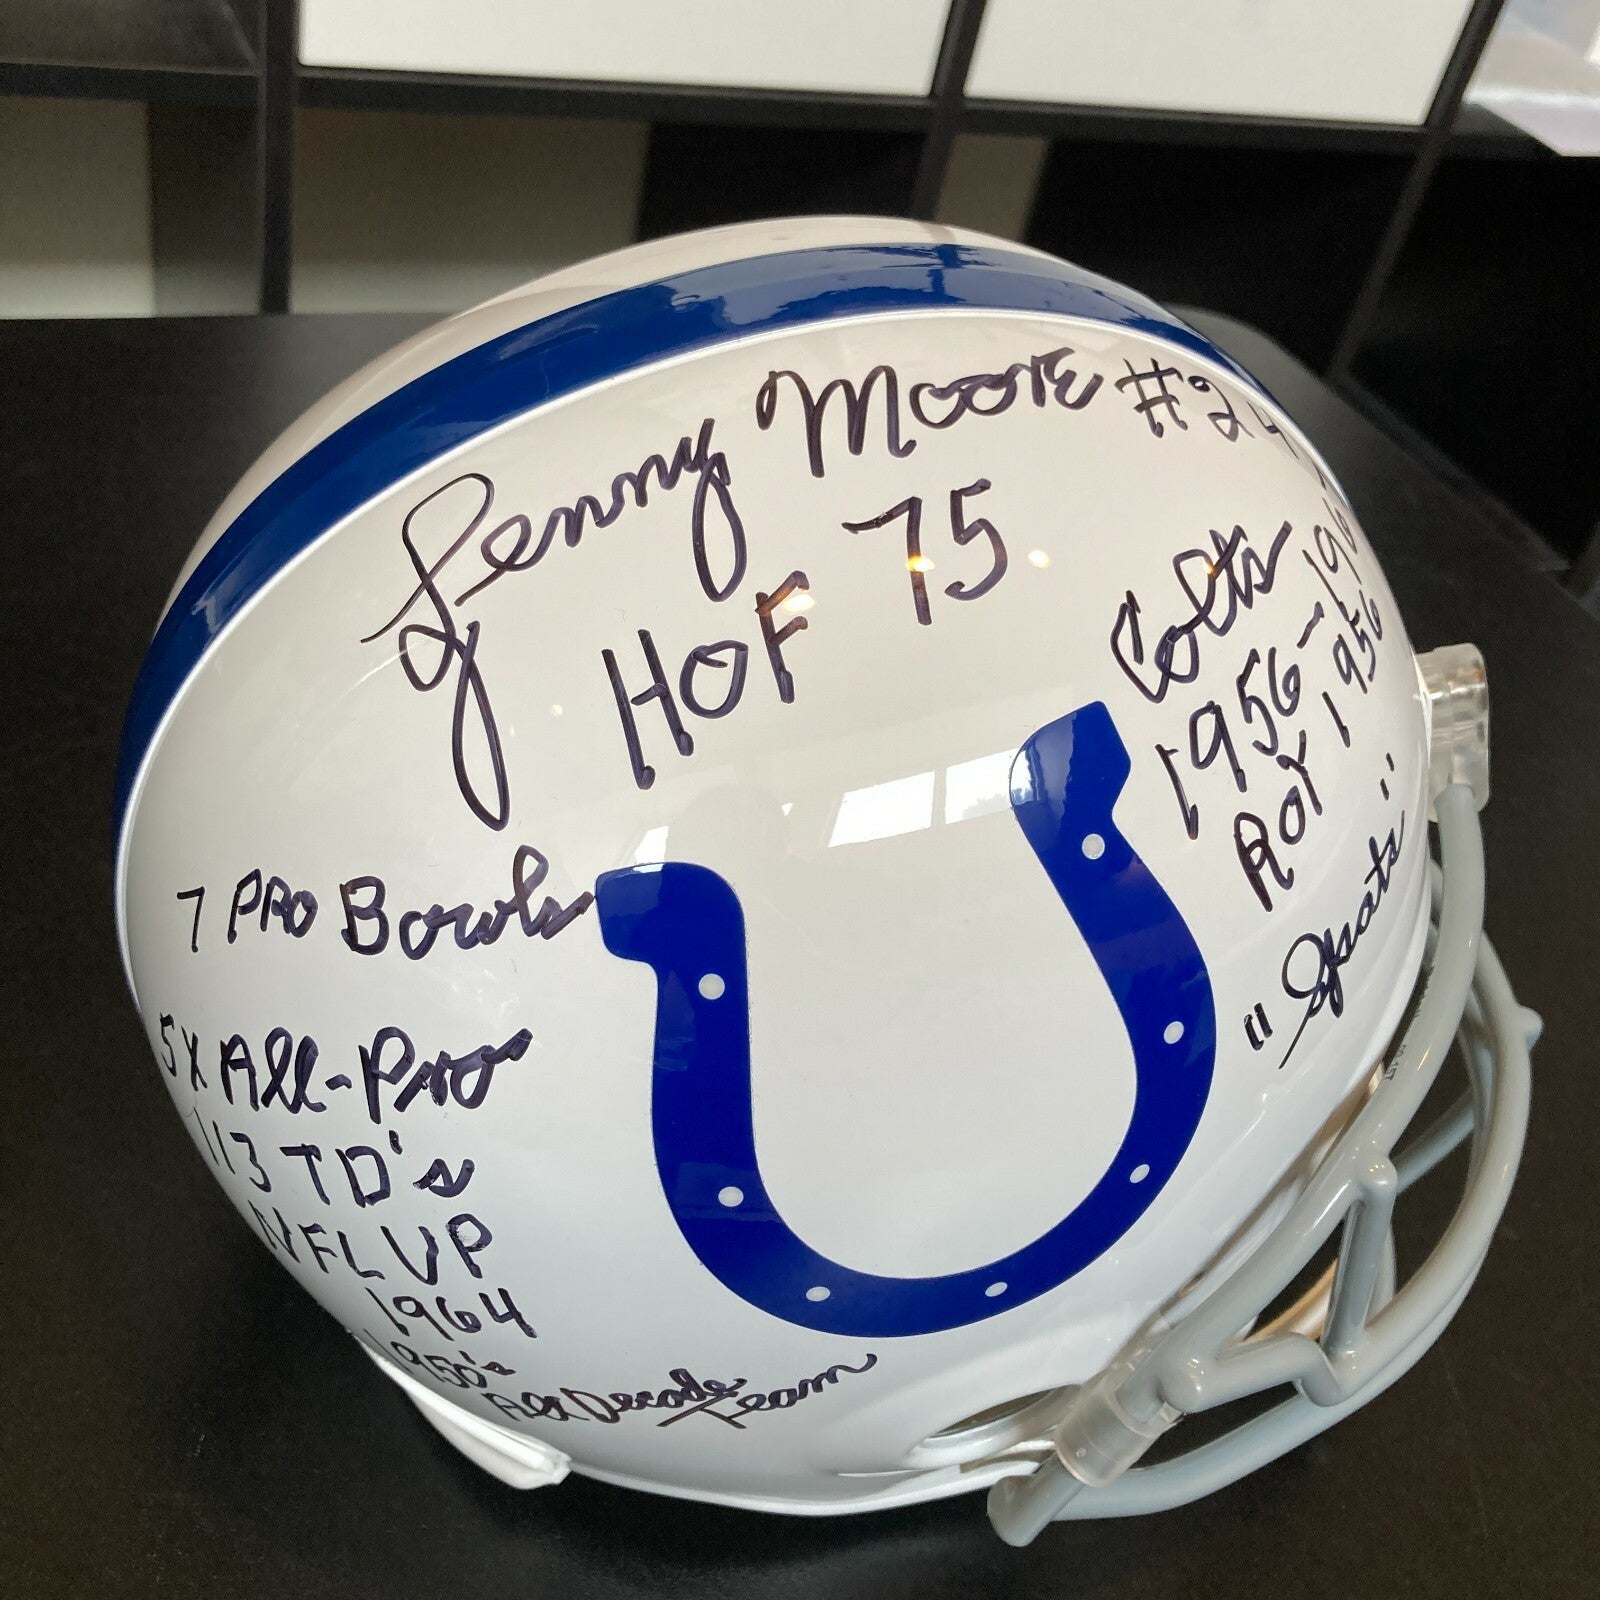 Lenny Moore #24
HOF 75
Colts
1956-196
ROY 1956
"Spats"
7 PRO Bowls
5X All-Pro
113 TD'S
NFL VP
1964
1950's
All Decade Team